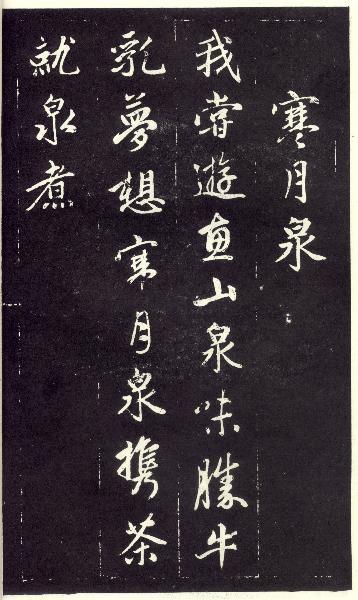 寒月泉
我嘗遊惠山泉味勝牛
乳夢想寒月泉携茶
就泉煮